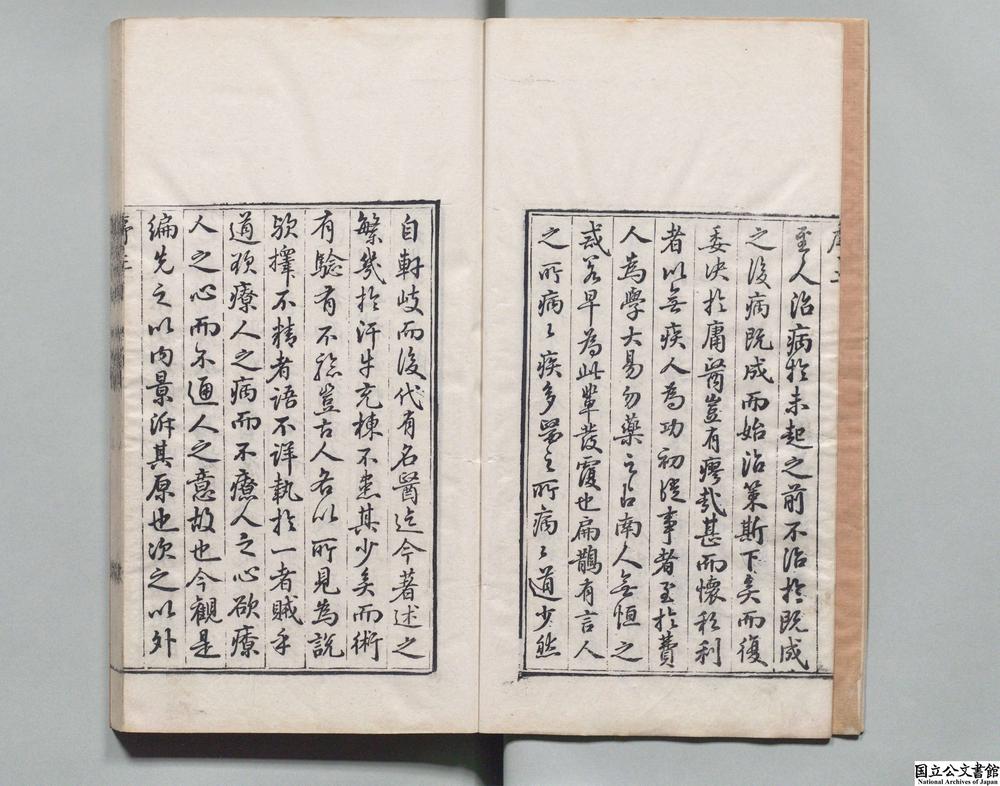 至人治病於未起之前不治於既成
之後病既成而始治策斯下矣而復
委決於庸醫豈有瘳哉甚而懷私利
者以無疾人為功初從事者至於費
人為學大易勿藥之占南人無恒之
或若早為此輩發覆也扁鵲有言人
之所病々疾多醫之所病々道少然
自軒岐而後代有名醫迄今著述之
繁幾於汗牛充棟不患其少矣而術
有驗有不驗豈古人各以所見為說
歟擇不精者語不詳執於一者賊乎
道欲療人之病而不療人之心欲療
人之心而不通人之意故也今觀是
編先之以內景泝其原也次之以外
序三
国立公文書館
National Archives of Japan